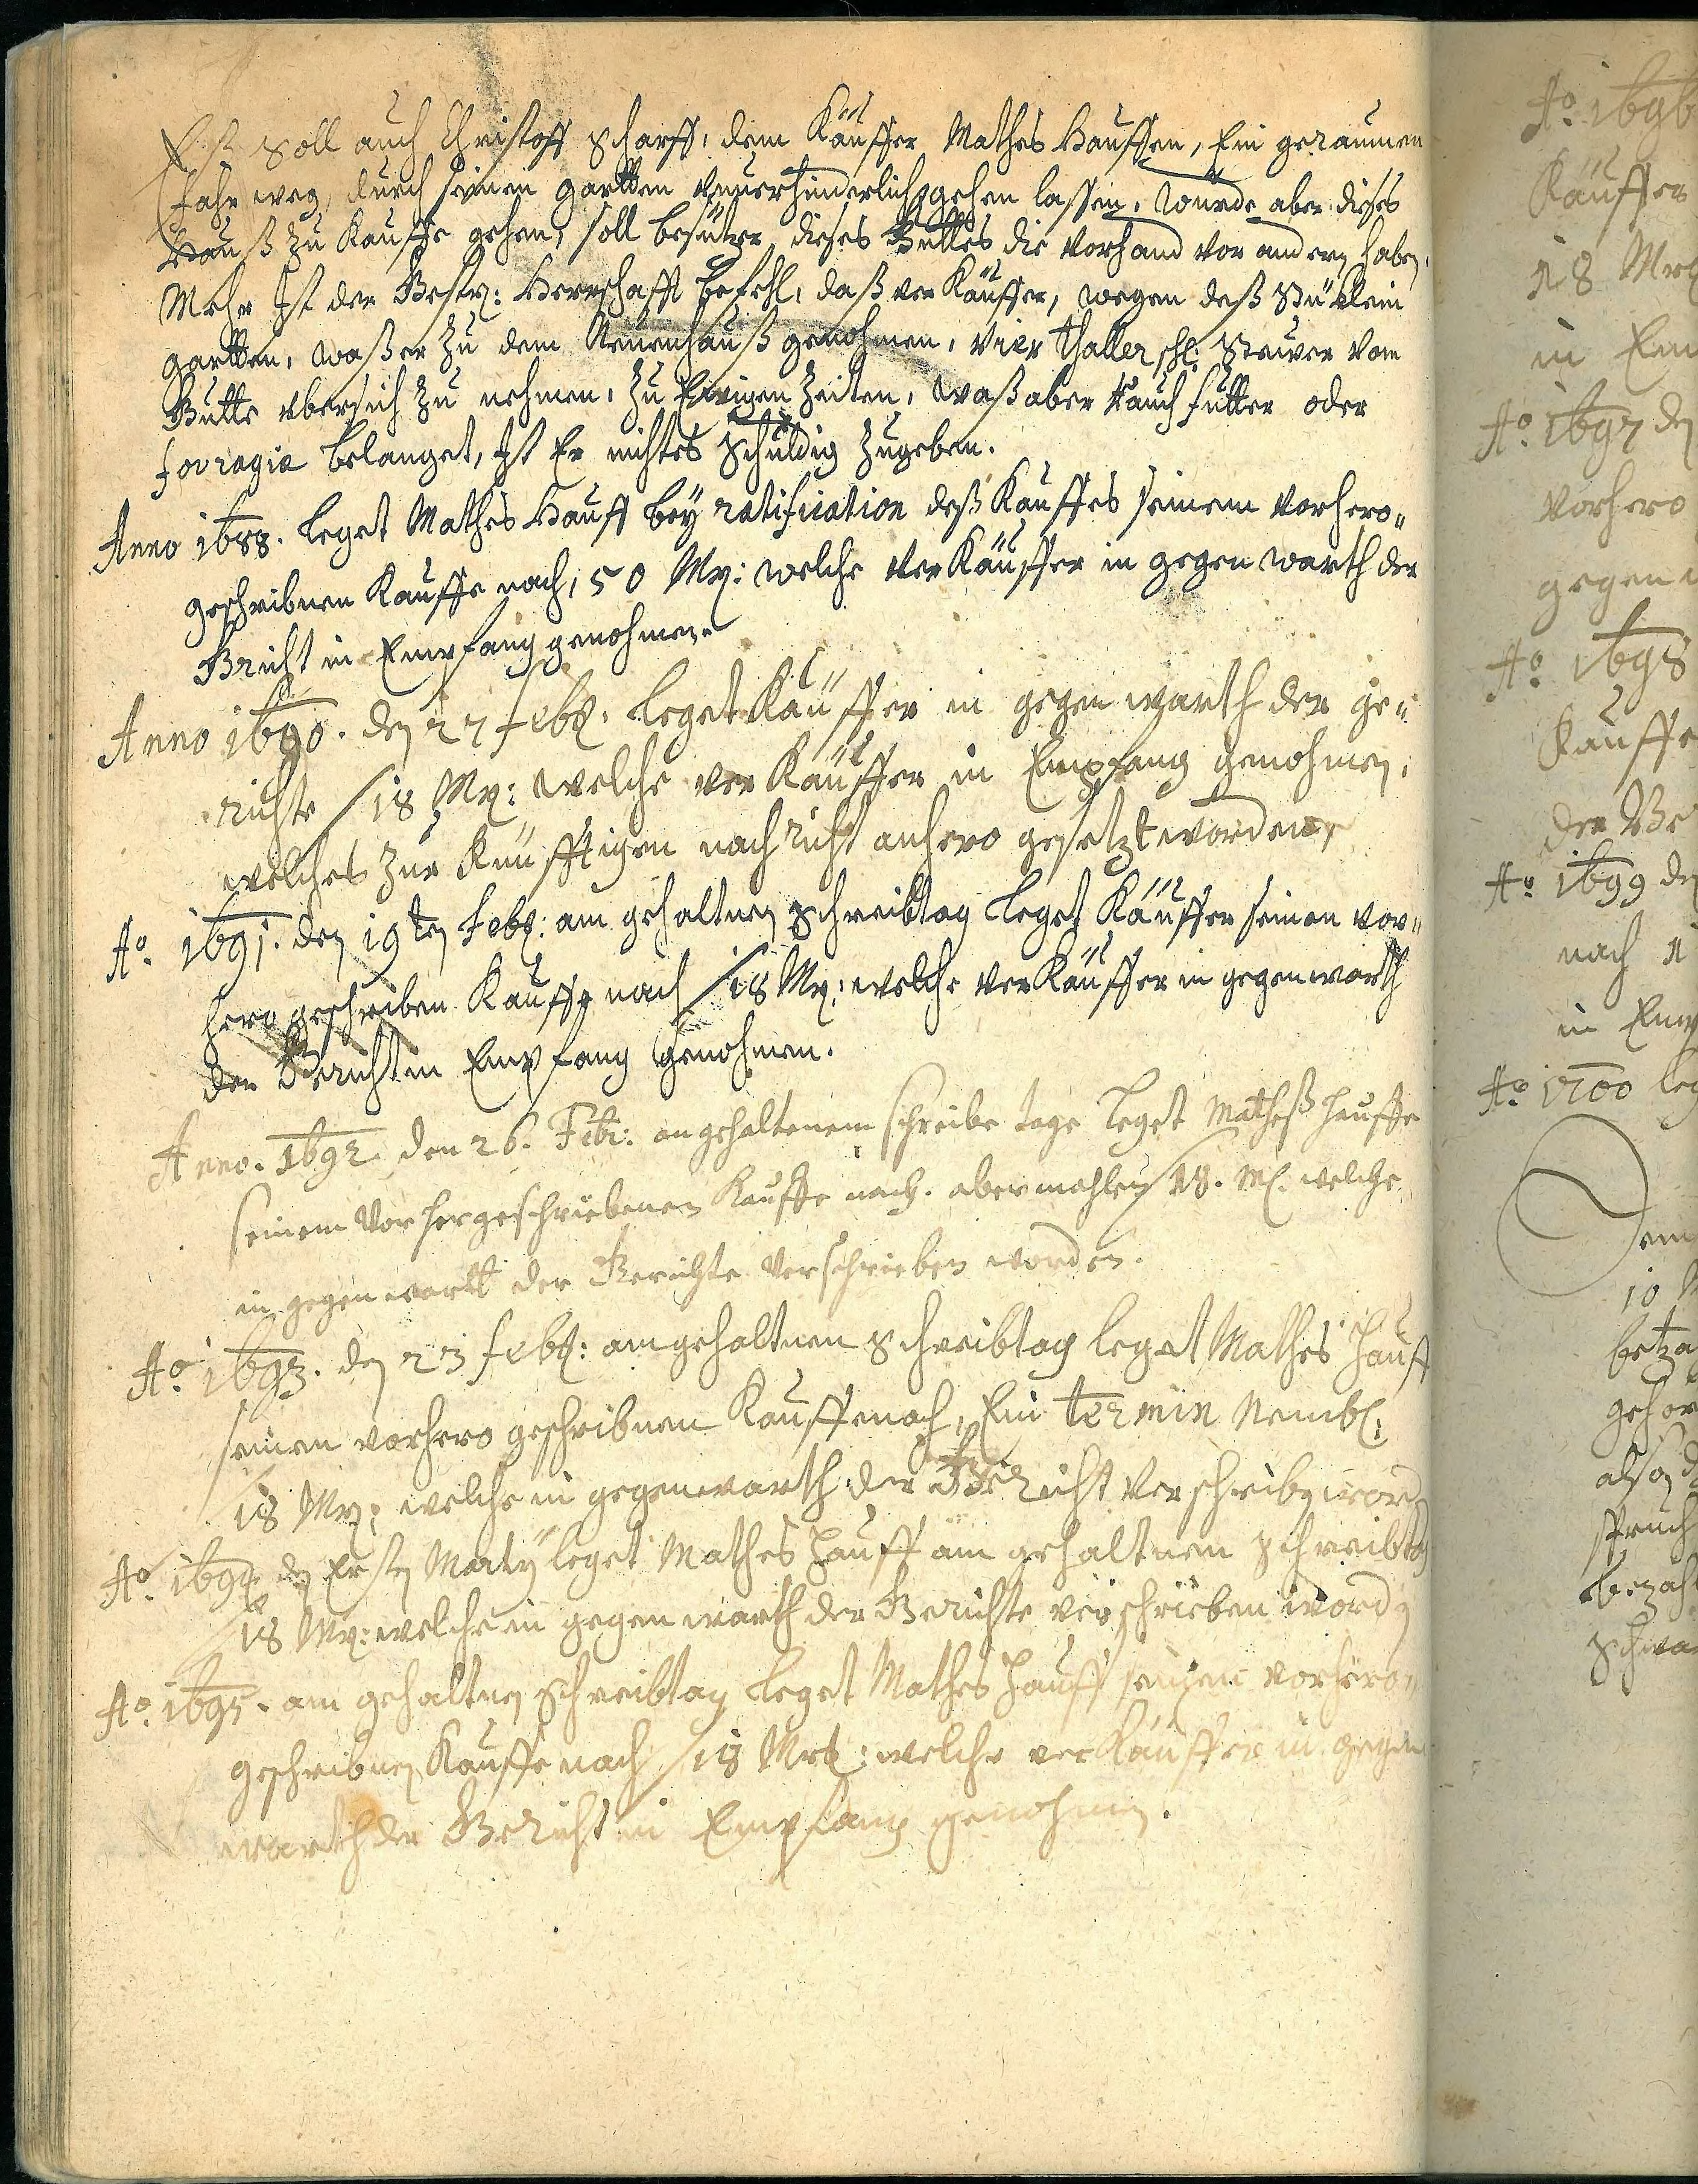 Eß Soll auch Christoff Scharff, dem Käuffer Mathes Hauffen, Ein geraumen
Fahr weg, durch seinen gartten unverhinderlich gehen lassen, würde aber dieses
Hauß zu Kauffe gehen, soll besützer dieses Gutts die Vorhand vor andern haben,
Mehr Ist der Gestr: Herrschafft befehl, daß ver Käuffer, wegen deß Stücklein
gartten, waß er zu dem Neuenhauß genohmen, Vier Thaller schl: Steuer vom
Gutte uber sich zu nehmen, zu Ewigen Zeiten, waß aber Rauch futter oder
fovragia belanget, Ist Er nichtes Schuldig zugeben.
Anno 1688. leget Mathes Hauff bey ratification deß Kauffes seinem vorhero-
geschribnen Kauffe nach, 50 Mr: welche verKäuffer in gegenwarth der
Gricht in Empfang genohmen.
Anno 1690. den 27 febr. leget Käuffer in gegenwarth der ge-
richte 18 Mr: welche verKäuffer in Empfang genohmen,
welches zur Künfftigen nachricht anhero gesetzt worden,
Ao. 1691. den 19ten Febr: am gehaltnen Schreibtag leget Käuffer seinen vor-
hero geschriben Kauffe nach 18 Mr: welche verKäuffer in gegenwarth
der Gericht in Empfang genohmen.
Anno. 1692. den 26. Febr: an gehaltenem schreibe tage leget Matheß Hauffe
seinem vorhergeschriebenen Kauffe nach. abermahlen 18. M. welche
in gegenwartt der Gerichte verschrieben worden.
Ao. 1693. den 23 febr: am gehaltnen Schreibtag leget Mathes Hauff
seinen vorhero geschribnen Kauffe nach, Ein termin Nembl:
18 Mr: welche in gegenwarth der Gericht verschriben word
Ao. 1694 den Ersten Marty leget Mathes Hauff am gehaltnem Schreibtag
18 Mr: welche in gegenwarth der Gerichte verschrieben worden
Ao. 1695. am gehaltnen Schreibtag leget Mathes Hauff seinen vorhero-
geschribnen Kauffe nach 18 Mrk: welche verKäuffer in gegen
warth der Gericht in Empfang genohmen.
Ao. 1696
Käuffer
18 Mrk
in Em
Ao. 1697 den
vorhero
gegen
Ao. 1698
Kauffe
der Ge
Ao. 1699 den
nach
in Emp
Ao. 1700 leg
Dem
10
betza
gehor
also
spruch
bezah
Schwa